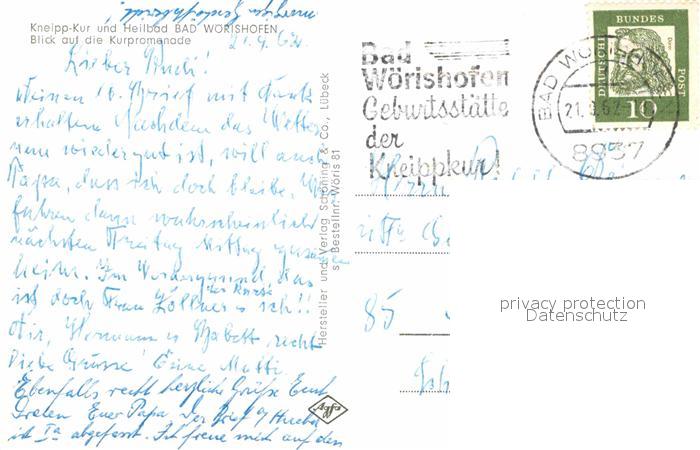 Kneipp-Kur und Heilbad BAD WÖRISHOFEN
Blick auf die Kurpromenade
21.9.62.
Lieber Rudi!
Deinen 10. Brief mit Dank
erhalten. Nachdem das Wetter
nun wieder gut ist, will auch
Papa, dass ich doch bleibe. Wir
fahren dann wahrscheinlich
nächsten Freitag Mittag
heim. Im Vordergrund das
ist doch Frau Zöllner u. ich!!
Dir, Hermann u. Babett recht
liebe Grüsse Eure Mutti.
Ebenfalls recht herzliche Grüße Euch
Dreien Euer Papa. Der Brief
ist Ia abgefasst. Ich freue mich auf den
Hersteller und Verlag Schöning & Co., Lübeck
Bestellnr. Wöris 81
Agfa
Bad
Wörishofen
Geburtsstätte
der
Kneippkur!
BAD WÖRISHOFEN
21.9.62
8937
DEUTSCHE
BUNDES
POST
10
Herrn
85
privacy protection
Datenschutz